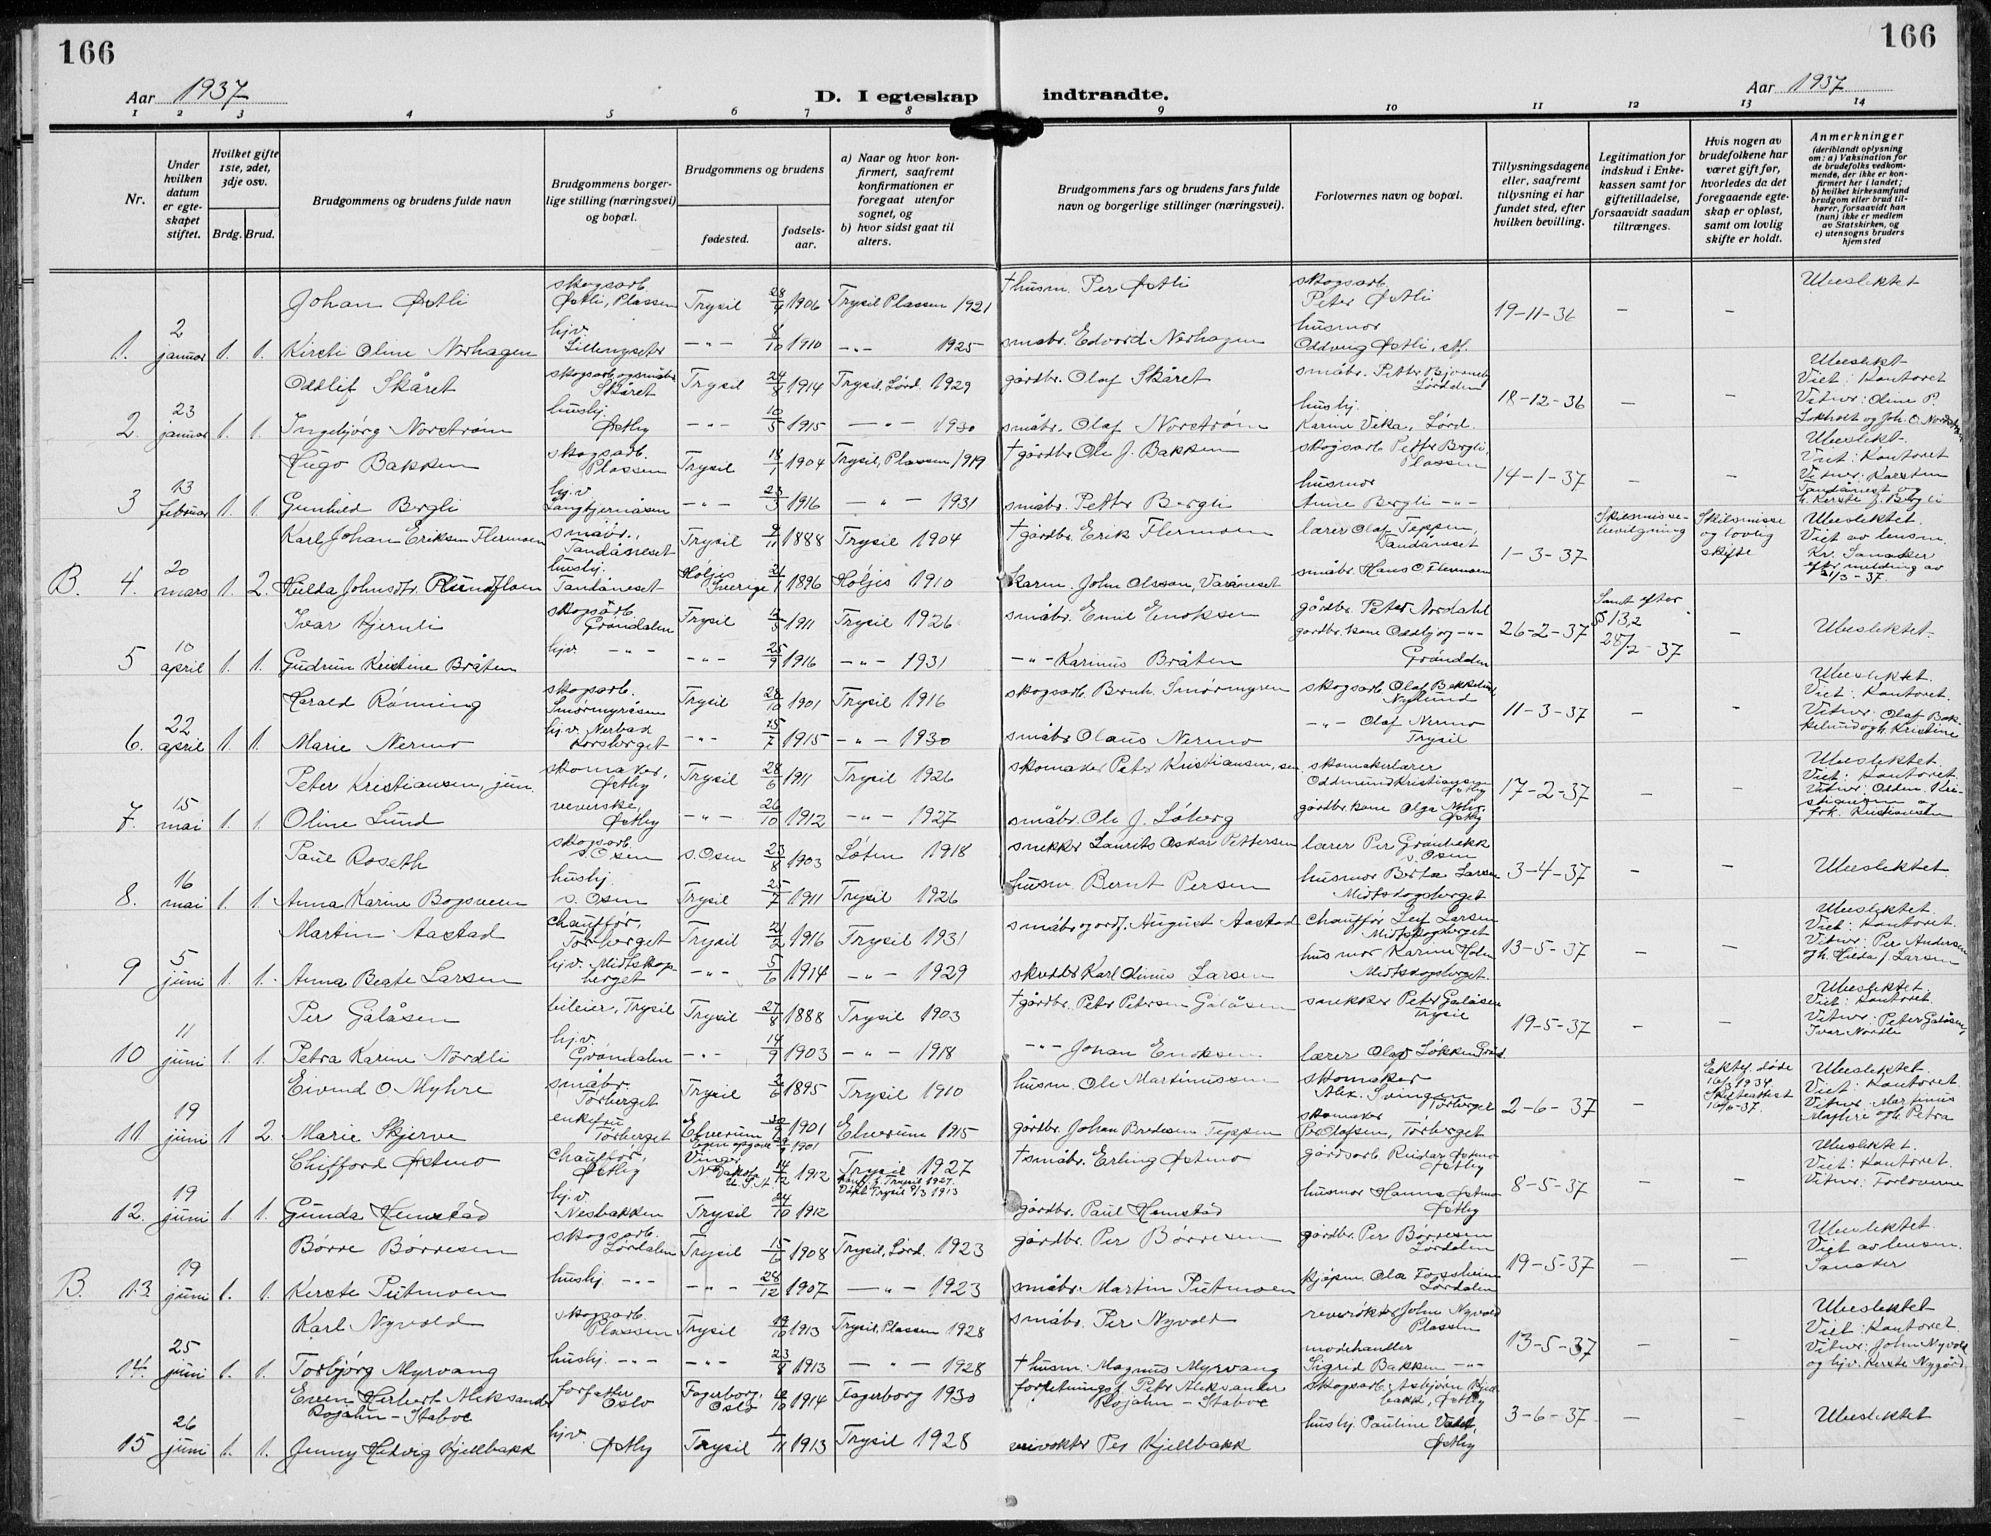 166
166
Aar 1937
D. I egteskap indtraadte.
Aar 1937
1 2 3 4 5 6 7 8 9 10 11 12 13 14
Nr.
Under hvilken datum er egteskapet stiftet.
Hvilket gifte 1ste, 2det, 3dje osv.
Brdg. Brud.
Brudgommens og brudens fulde navn
Brudgommens borgerlige stilling (næringsvei) og bopæl.
Brudgommens og brudens
fødested.
fødselsaar.
a) Naar og hvor konfirmert, saafremt konfirmationen er foregaat utenfor sognet, og
b) hvor sidst gaat til alters.
Brudgommens fars og brudens fars fulde navn og borgerlige stillinger (næringsvei).
Forlovernes navn og bopæl.
Tillysningsdagene eller, saafremt tillysning ei har fundet sted, efter hvilken bevilling.
Legitimation for indskud i Enkekassen samt for giftetilladelse, forsaavidt saadan tiltrænges.
Hvis nogen av brudefolkene har været gift før, hvorledes da det foregaaende egteskap er opløst, samt om lovlig skifte er holdt.
Anmerkninger (deriblandt oplysning om: a) Vaksination for de brudefolks vedkommende, der ikke er konfirmert her i landet; b) hvilket kirkesamfund brudgom eller brud tilhører, forsaavidt han (hun) ikke er medlem av Statskirken, og c) utensogns bruders hjemsted
Johan Østli skogsarb. Østli, Plassen Trysil 28/4 1906 Trysil Plassen 1921 † husm. Per Østli skogsarb. Peter Østli 19-11-36 – – Ubeslektet
1. 2 januar 1. 1. Kirsti Oline Nerhagen hjv. Lillengseter -"- 8/10 1910 -"- 1925 småbr. Edvard Nerhagen husmor Oddveig Østli
Oddlif Skåret skogsarb. og småbr. Skåret Trysil 24/8 1914 Trysil, Lørd. 1929 gårdbr. Olaf Skåret småbr. Petter Lørdalen 18-12-36 – – Ubeslekt. Viet: Kontoret Vitner: Oline P.
2. 23 januar 1. 1. Ingebjørg Norstrøm hushj. Østby -"- 10/5 1915 -"- 1930 småbr. Olaf Norstrøm hushj. Karine Vika, Lørd. og Joh. O. Nordstrøm
Hugo Bakken skogsarb. Plassen Trysil 1904 Trysil, Plassen 1919 † gårdbr. Ole J. Bakken skogsarb. Petter Bergli, Plassen 14-1-37 – – Ubeslekt. Viet: Kontoret Vitner: Karsten Tandåneset og
3 13 februar 1. 1. Gunhild Bergli hj.v. Langbjernåsen -"- 23/3 1916 -"- 1931 småbr. Petter Bergli husmor Anne Bergli -"- h. Kerste J. Bergli
Karl Johan Eriksen Flermoen småbr., Tandåneset Trysil 1888 Trysil 1904 † gårdbr. Erik Flermoen lærer Olaf Teppen, Tandåneset 1-3-37 Skilsmissebevilgning Skilsmisse og lovlig skifte Ubeslektet. Viet av lensm. Kr. Sanaker efter melding av 31/3-37.
B. 4. 20 mars 1. 2. Hulda Johnsdtr. Rundfloen hushj. Tandåneset Høljes Sverige 21/1 1896 Høljes 1910 John Olsson, Varåneset småbr. Hans O Flermoen
Ivar Kjernli skogsarb. Grøndalen Trysil 1911 Trysil 1926 småbr. Emil Enoksen gårdbr. Peter Nordahl 26-2-37 Samt. efter § 13,2 28/2-37 – Ubeslektet.
5 10 april 1. 1. Gudrun Kristine Bråten hjv. -"- -"- 25/9 1916 -"- 1931 -"- Karinus Bråten gårdbr. kone Oddbjørg -"- Grøndalen
Harald Rønning skogsarb. Smørmyråsen Trysil 28/10 1901 Trysil 1916 skogsarb. Bernh. Smørmyren skogsarb. Olaf Bakkelund Nylund 11-3-37 – – Ubeslektet. Viet: Kontoret. Vitner: Olaf Bakkelund og h. Kristine
6. 22 april 1. 1. Marie Nermo hj.v. Nerbad Korsberget -"- 15/7 1915 -"- 1930 småbr Olaus Nermo -"- Olaf Nermo Trysil
Peter Kristiansen, jun. skomaker, Østby Trysil 28/6 1911 Trysil 1926 skomaker Peter Kristiansen, sen. skomakerlærer Oddmund Kristiansen Østby 17-2-37 – – Ubeslektet. Viet: Kontoret. Vitner: Oddm. Kristiansen og frk. Kristiansen
7. 15 mai 1. 1. Oline Lund veverske, Østby -"- 26/10 1912 -"- 1927 småbr. Ole J. Løberg gårdbr. kone Olga Østby
Paul Roseth skogsarb. S. Osen S. Osen 23/8 1903 Løten 1918 snekker Laurits Oskar Pettersen lærer Per Grønbekk S. Osen 3-4-37 – – Ubeslektet
8. 16 mai 1. 1. Anna Karine Bogsveen hushj. S. Osen Trysil 25/7 1911 Trysil 1926 husm. Bernt Persen husmor Berta Larsen Midtskogberget
Martin Aastad chauffør, Tørberget Trysil 21/2 1916 Trysil 1931 småbr og ordf. August Aastad chauffør Leif Larsen Midtskogberget 13-5-37 – – Ubeslektet. Viet: Kontoret. Vitner: Per Andersen og h. Hilda J. Larsen
9 5 juni 1. 1. Anna Beate Larsen hj.v. Midtskogberget -"- 5/6 1914 -"- 1929 skredder Karl Olinus Larsen husmor Karine Holm Midtskogberget
Per Galåsen bileier, Trysil Trysil 27/8 1888 Trysil 1903 † gårdbr. Peter Petersen Galåsen snekker Peter Galåsen Trysil 19-5-37 – – Ubeslektet. Viet: Kontoret. Vitner: Peter Galåsen, Ivar Nordli
10 11 juni 1. 1. Petra Karine Nordli hj.v. Grøndalen -"- 14/9 1903 -"- 1918 -"- Johan Enoksen lærer Olav Løkken
Eivind O. Myhre småbr. Tørberget Trysil 1895 Trysil 1910 husm. Ole Martinussen skomaker Alex. Svingen Tørberget 2-6-37 – Ektef. døde 16/3 1934 Skifteattest 10/6-37. Ubeslektet. Viet: Kontoret. Vitner: Martinus Myhre og h. Petra
11. 19 juni 1 2. Marie Skjerve enkefru Tørberget Elverum 1901 Elverum 1915 gårdbr. Johan Bredesen Teppen skomaker Per Olafsen, Tørberget
Chifford Østmo chauffør, Østby N. Dakota U.S.A 14/12 1912 Trysil 1927 Konf. h. Trysil 1927. Døpt Trysil 9/3 1913 † småbr. Erling Østmo gårdsarb. Reidar Østmo Østby 8-5-37 – – Ubeslektet. Viet: Kontoret. Vitner: Forloverne
12. 19 juni 1. 1. Gunda Hemstad hj.v. Nesbakken Trysil 24/10 1912 gårdbr. Paul Hemstad husmor Hanna Østmo Østby
Børre Børresen skogsarb. Lørdalen Trysil 15/6 1908 Trysil, Lørd. 1923 gårdbr. Per Børresen gårdbr. Per Børresen Lørdalen 19-5-37 – – Ubeslektet. Viet av lensm. Sanaker
B. 13. 19 juni 1. 1. Kerste Putmoen hushj. -"- -"- 28/12 1907 -"- 1923 småbr. Martin Putmoen kjøpm. Ola Fossheim Lørdalen
Karl Nyvold skogsarb. Plassen Trysil 19/10 1913 Trysil, Plassen 1928 småbr. Per Nyvold reverøkter John Nyvold Plassen 13-5-37 – – Ubeslektet Viet: Kontoret. Vitner: John Nyvold og hjv. Kerste Nygård
14. 25 juni 1. 1. Torbjørg Myrvang hushj. -"- -"- 23/8 1913 -"- 1928 † husm. Magnus Myrvang motehandler Sigrid Bakken -"-
Even Herbert Aleksander Rojahn-Staboe forfatter Oslo Fagerborg, Oslo 1914 Fagerborg 1930 forretningsf. Petr Aleksander Rojahn-Staboe skogsarb. Asbjørn Kjellbakk, Østby 3-6-37 – – Ubeslektet
15 26 juni 1. 1. Jenny Hedvig Kjellbakk hjv. Østby Trysil 1/11 1913 Trysil 1928 Per Kjellbakk hushj. Pauline Østby